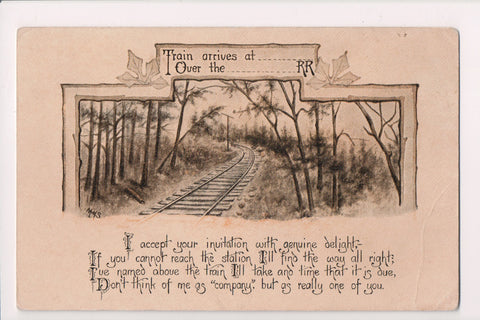 Train arrives at
Over the RR
MMS
I accept your invitation with genuine delight;-
If you cannot reach the station I'll find the way all right;
I've named above the train I'll take and time that it is due,
Don't think of me as "company," but as really one of you.